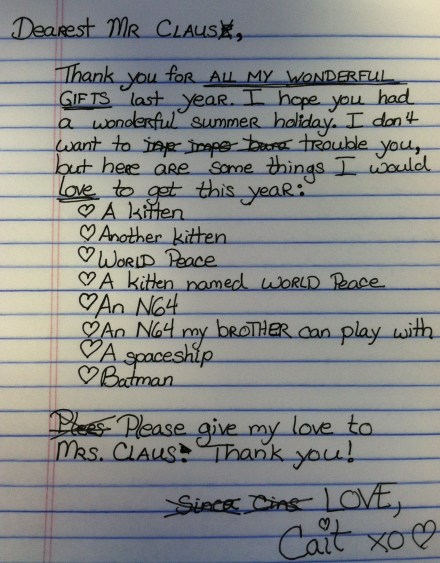 Dearest Mr Claus,
Thank you for ALL MY WONDERFUL
GIFTS last year. I hope you had
a wonderful summer holiday. I don't
want to imp impo burd trouble you,
but here are some things I would
love to get this year:
♡ A kitten
♡ Another kitten
♡ World Peace
♡ A kitten named World Peace
♡ An N64
♡ An N64 my brother can play with
♡ A spaceship
♡ Batman
Plees Please give my love to
Mrs. Claus. Thank you!
Since Cins LOVE,
Cait xo ♡